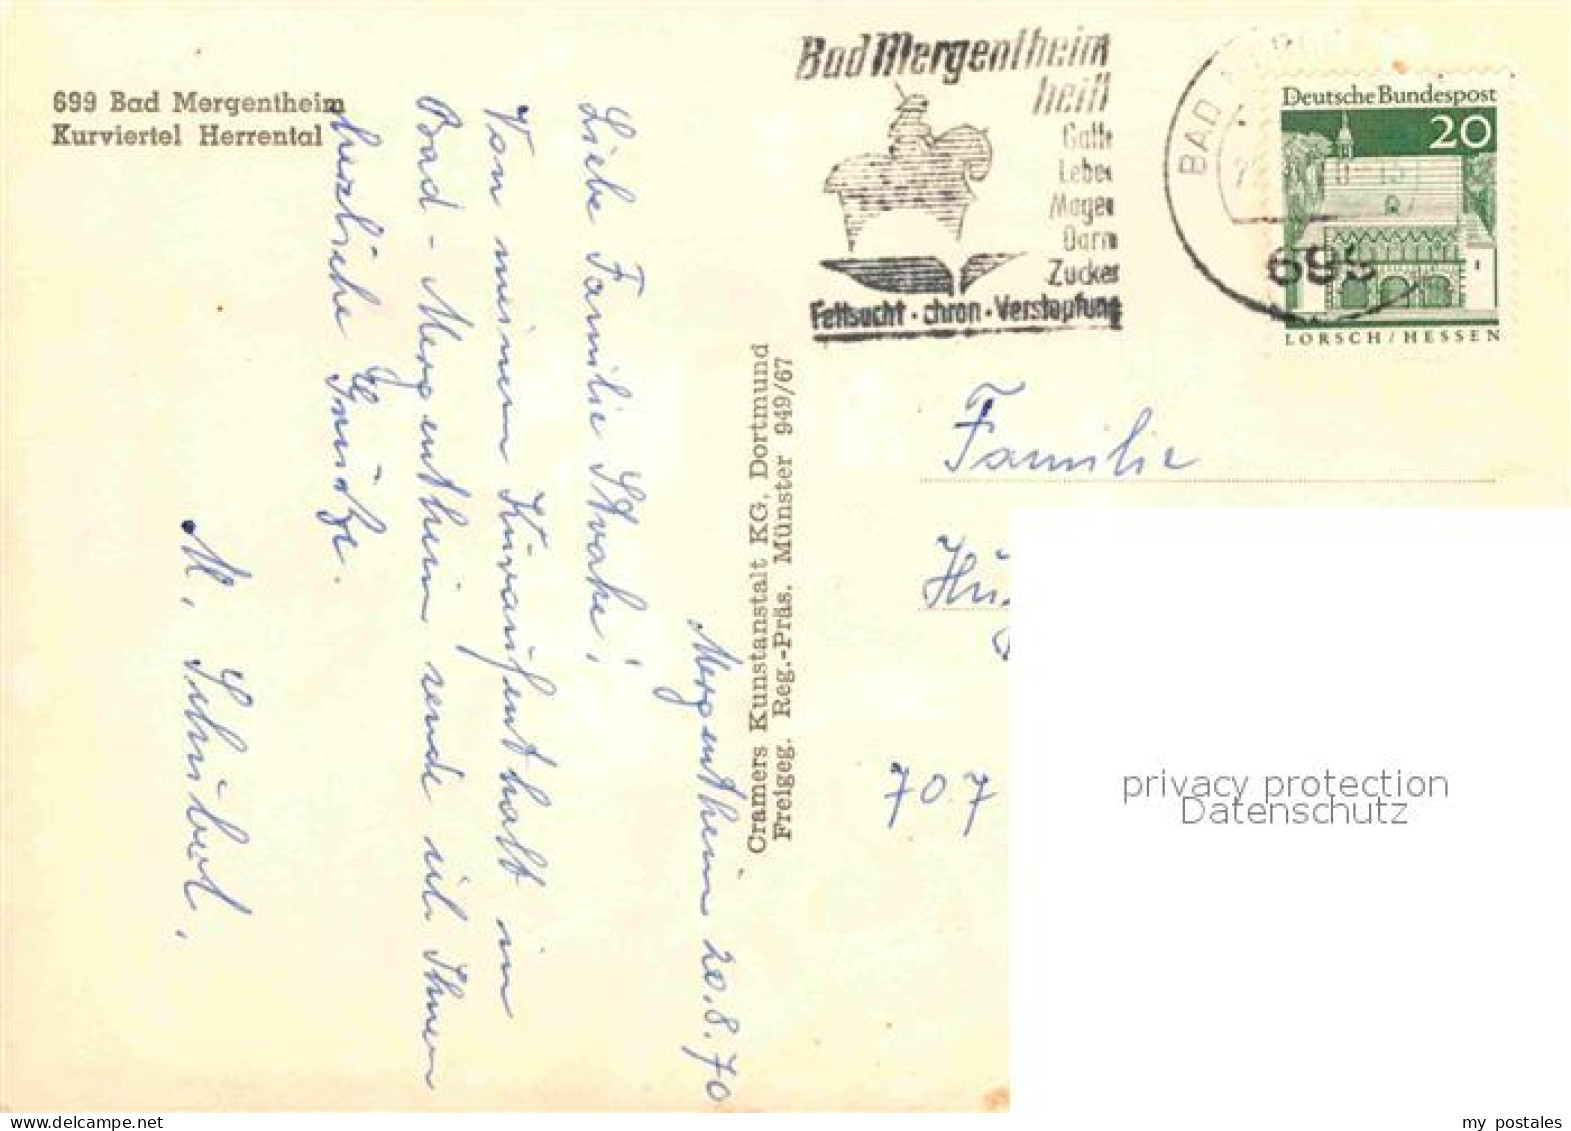 699 Bad Mergentheim
Kurviertel Herrental
Mergentheim 20.8.70
Liebe Familie Strake!
Von meinem Kuraufenthalt in
Bad-Mergentheim sende ich Ihnen
herzliche Grüße.
M.
Cramers Kunstanstalt KG, Dortmund
Freigeg. Reg.-Präs. Münster 949/67
Bad Mergentheim
heilt
Galle
Leber
Magen
Darm
Zucker
Fettsucht · chron · Verstopfung
BAD
699
Deutsche Bundespost
20
LORSCH / HESSEN
Familie
707
privacy protection
Datenschutz
my postales